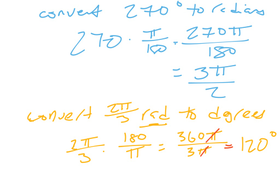 convert 270° to radians
270 · π/180 = 270π/180
= 3π/2
convert 2π/3 rad to degrees
2π/3 · 180/π = 360π/3π = 120°